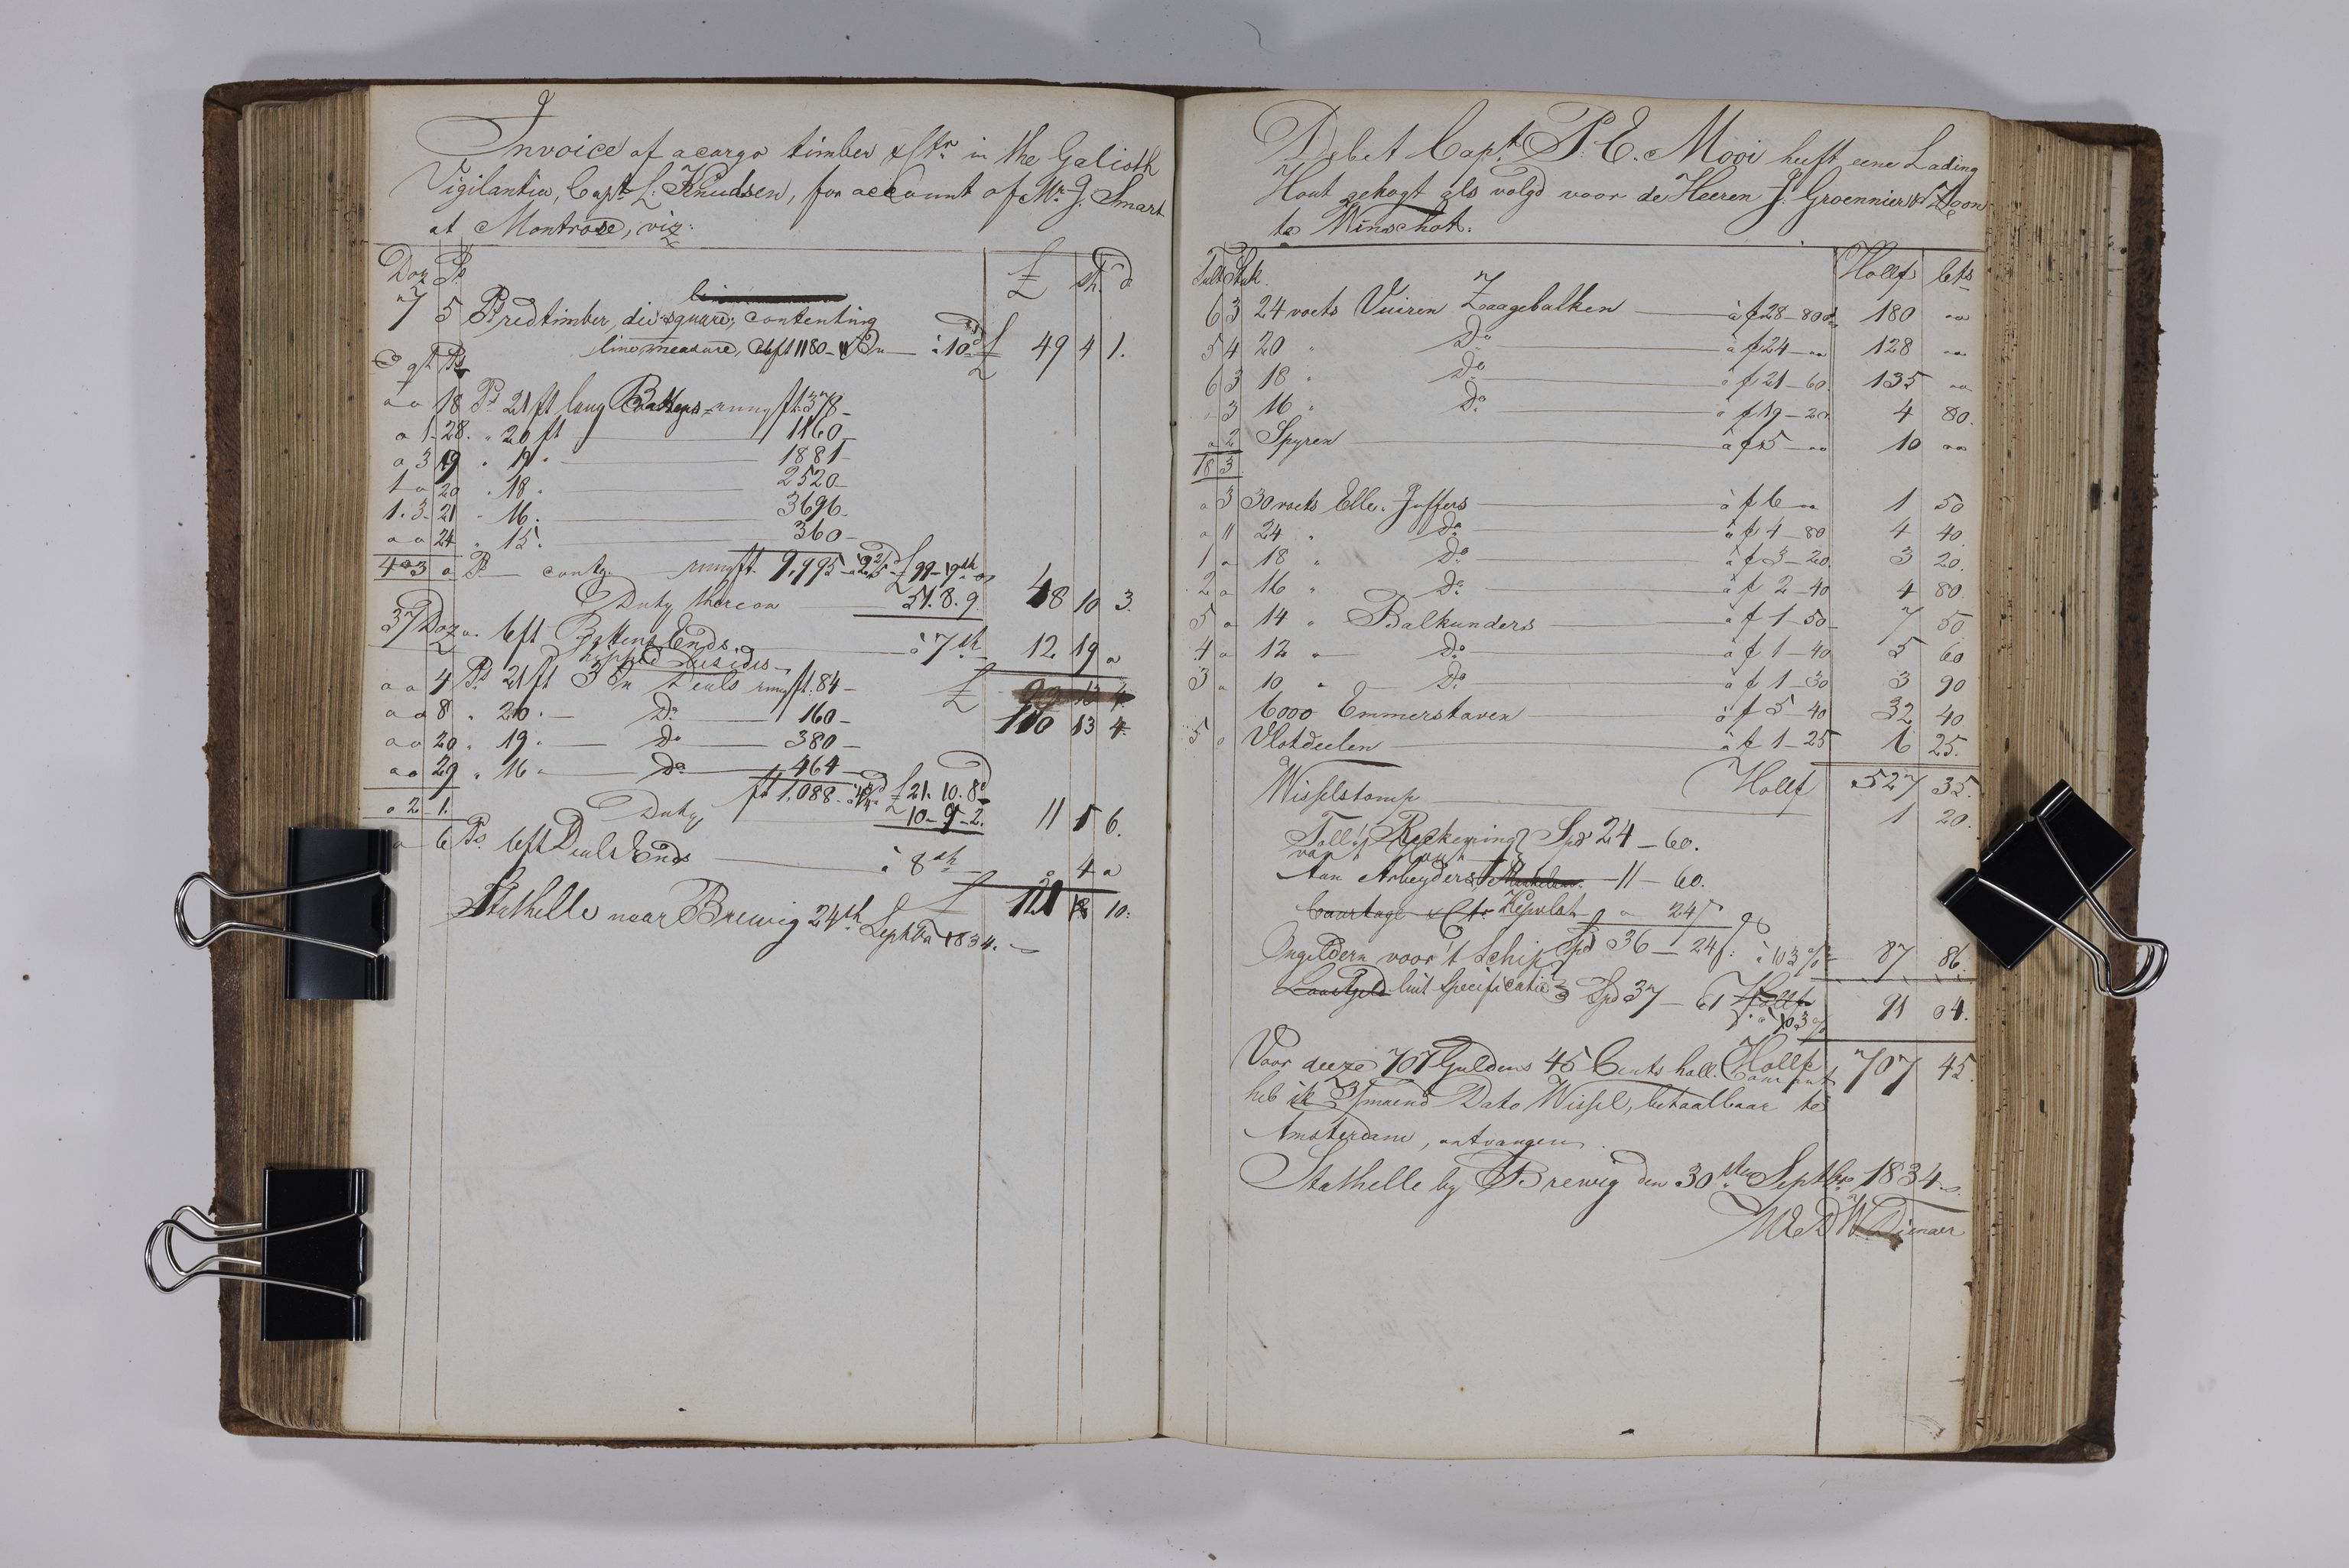 Invoice of a cargo timber & ctr. in the Galioth
Vigilantia, Capt. L. Knudsen, for account of Mr. J. Smart
at Montrose, viz:
Doz Ps. £ sh. d
7 5 Ps redtimber, die square, contenting
line measure, Cbft 1180- à 10d £ 49 4 1.
C qt Ps
" " 18 Ps 21 ft long Battens rung ft. 378-
" 1- 28. " 20 ft 1160-
" 3 19 " 19 " 1881-
1 " 20 " 18 " 2520-
1. 3- 21 " 16. 3696-
" " 24 " 15. 360-
4 " 3 " Ps contg. rung ft. 9,995- £ 99-19sh
Duty thereon 51. 8. 9. 48 10 3.
37 Doz " 6ft Battens Ends à 7sh 12 19 "
" " 4 Ps 21 ft 3 in Deals rung ft. 84-
£
" " 8 " 20 " Do 160- 110 13 4
" " 20 " 19 " do 380-
" " 29 " 16 " do 464-
ft 1,088- £ 21. 10. 8d
" 2 1. Duty 10-9-2. 11 1 6.
" 6 Ps. 6ft Deals Ends à 8sh " 4 "
£ 121 18 10.
Stathelle near Brewig 24th Septbr 1834.
Debet Capt. P. E. Mooi heeft eene Lading
Hout gekogt als volgd voor de Heeren J. Groennier & Zoon
te Winschot.
Tult Stuk Hollf Cts
6 3 24 voets Vuiren Zaagebalken à f 28-80 180 "
5 4 20 " Do à f 24 " 128 "
6 3 18 " Do à f 21-60 135 "
" 3 16 " Do à f 19-20 4 80.
" 2 Spyren à f 5 " 10 "
18 3
" 3 30 voets Elle. Juffers à f 6 " 1 50
" 11 24 " Do à f 4-80 4 40
1 " 18 " Do à f 3-20. 3 20.
2 " 16 " Do à f 2-40 4 80.
5 " 14 " Balkunders à f 1-50 7 50
4 " 12 " Do à f 1-40 5 60
3 " 10 " Do à f 1-30 3 90
6000 Emmerstaven à f 5-40 32 40
5 " Vlotdeelen à f 1-25 6 25.
Hollf 527 35.
Wisselstemp 1 20.
Toll Rekening Spd 24-60.
van Hout
Aan Arbeyders 11-60.
Courtage & Ct.
Ongeldern voor 't Schip Spd 36-24 à 103 % 87 86.
Lastgeld luit Specificatie Spd 37-61 Hollf 91 04.
à 103 %
Voor deeze 707 Guldens 45 Cents holl. Courant Hollf 707 45.
heb ik 3/maend Dato Wissel, betaalbaar te
Amsterdam, ontvangen.
Stathelle by Brewig den 30sten Septbr 1834.